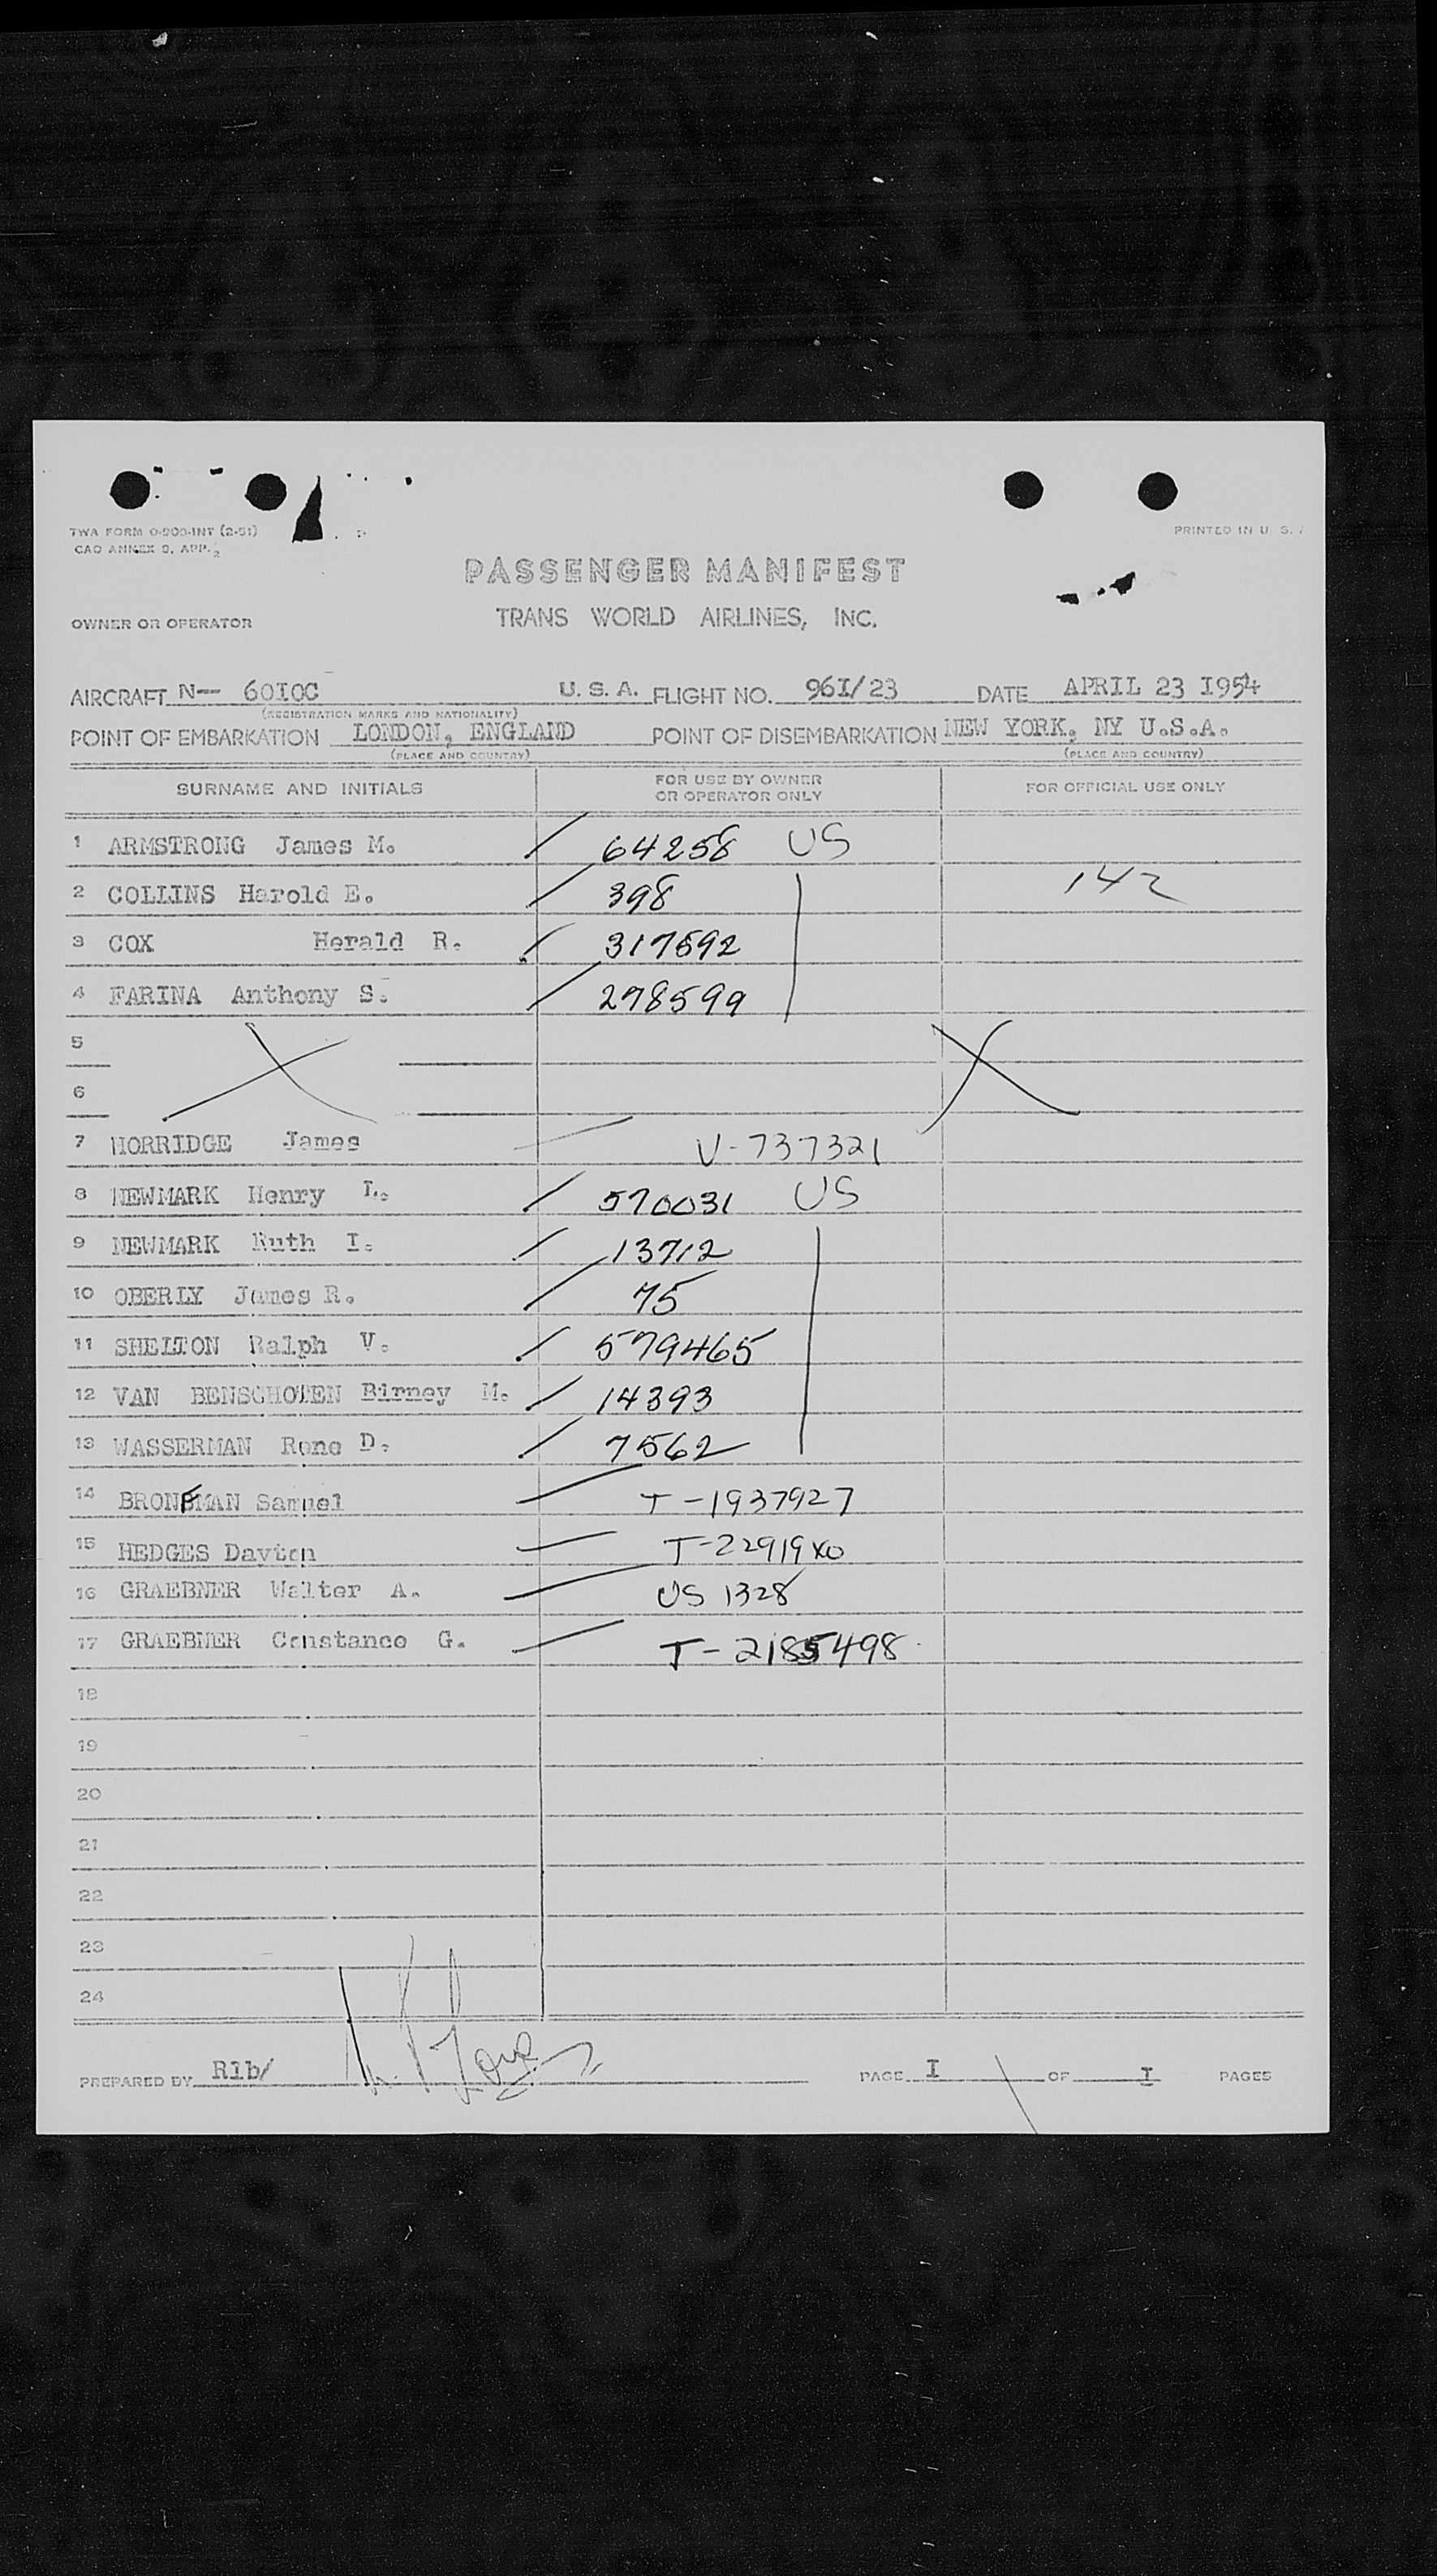 TWA FORM 0-900-INT (2-51)
CAO ANNEX 9, APP. 2
PRINTED IN U. S.
PASSENGER MANIFEST
OWNER OR OPERATOR TRANS WORLD AIRLINES, INC.
AIRCRAFT N-- 60I0C U. S. A. FLIGHT NO. 96I/23 DATE APRIL 23 I954
(REGISTRATION MARKS AND NATIONALITY)
POINT OF EMBARKATION LONDON, ENGLAND POINT OF DISEMBARKATION NEW YORK, NY U.S.A.
(PLACE AND COUNTRY) (PLACE AND COUNTRY)
SURNAME AND INITIALS FOR USE BY OWNER OR OPERATOR ONLY FOR OFFICIAL USE ONLY
1 ARMSTRONG James M. 64258 US
2 COLLINS Harold E. 398 142
3 COX Herald R. 317592
4 FARINA Anthony S. 278599
5
6
7 HORRIDGE James V-737321
8 NEWMARK Henry L. 570031 US
9 NEWMARK Ruth I. 13712
10 OBERLY James R. 75
11 SHELTON Ralph V. 579465
12 VAN BENSCHOTEN Birney M. 14393
13 WASSERMAN Rene D. 7562
14 BRONFMAN Samuel T-1937927
15 HEDGES Dayton T-22919
16 GRAEBNER Walter A. US 1328
17 GRAEBNER Constance G. T-2185498
18
19
20
21
22
23
24
PREPARED BY Rlb/ PAGE I OF I PAGES